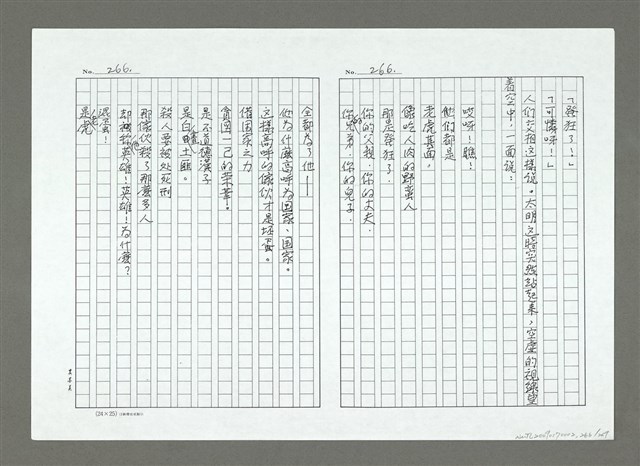 No. 266.
「發狂了！」
「可憐呀！」
人們交相這樣說。太明這時突然站起來，空虛的視線望
著空中！一面說：
哎呀！瞧！
他們都是
老虎其面，
像吃人肉的野蠻人
那是發狂了．
你的父親．你的丈夫．
你的兄弟．你的兒子．
No. 266.
全都為了他——
他為什麼高呼為國家、國家。
這樣高呼的傢伙才是坏蛋。
借國家之力
貪圖一己的榮華！
是不道德漢子
是白晝土匪。
殺人要被处死刑
那傢伙殺了那麼多人
却被称英雄！英雄！為什麼？
混蛋！
是老虎
(24×25)